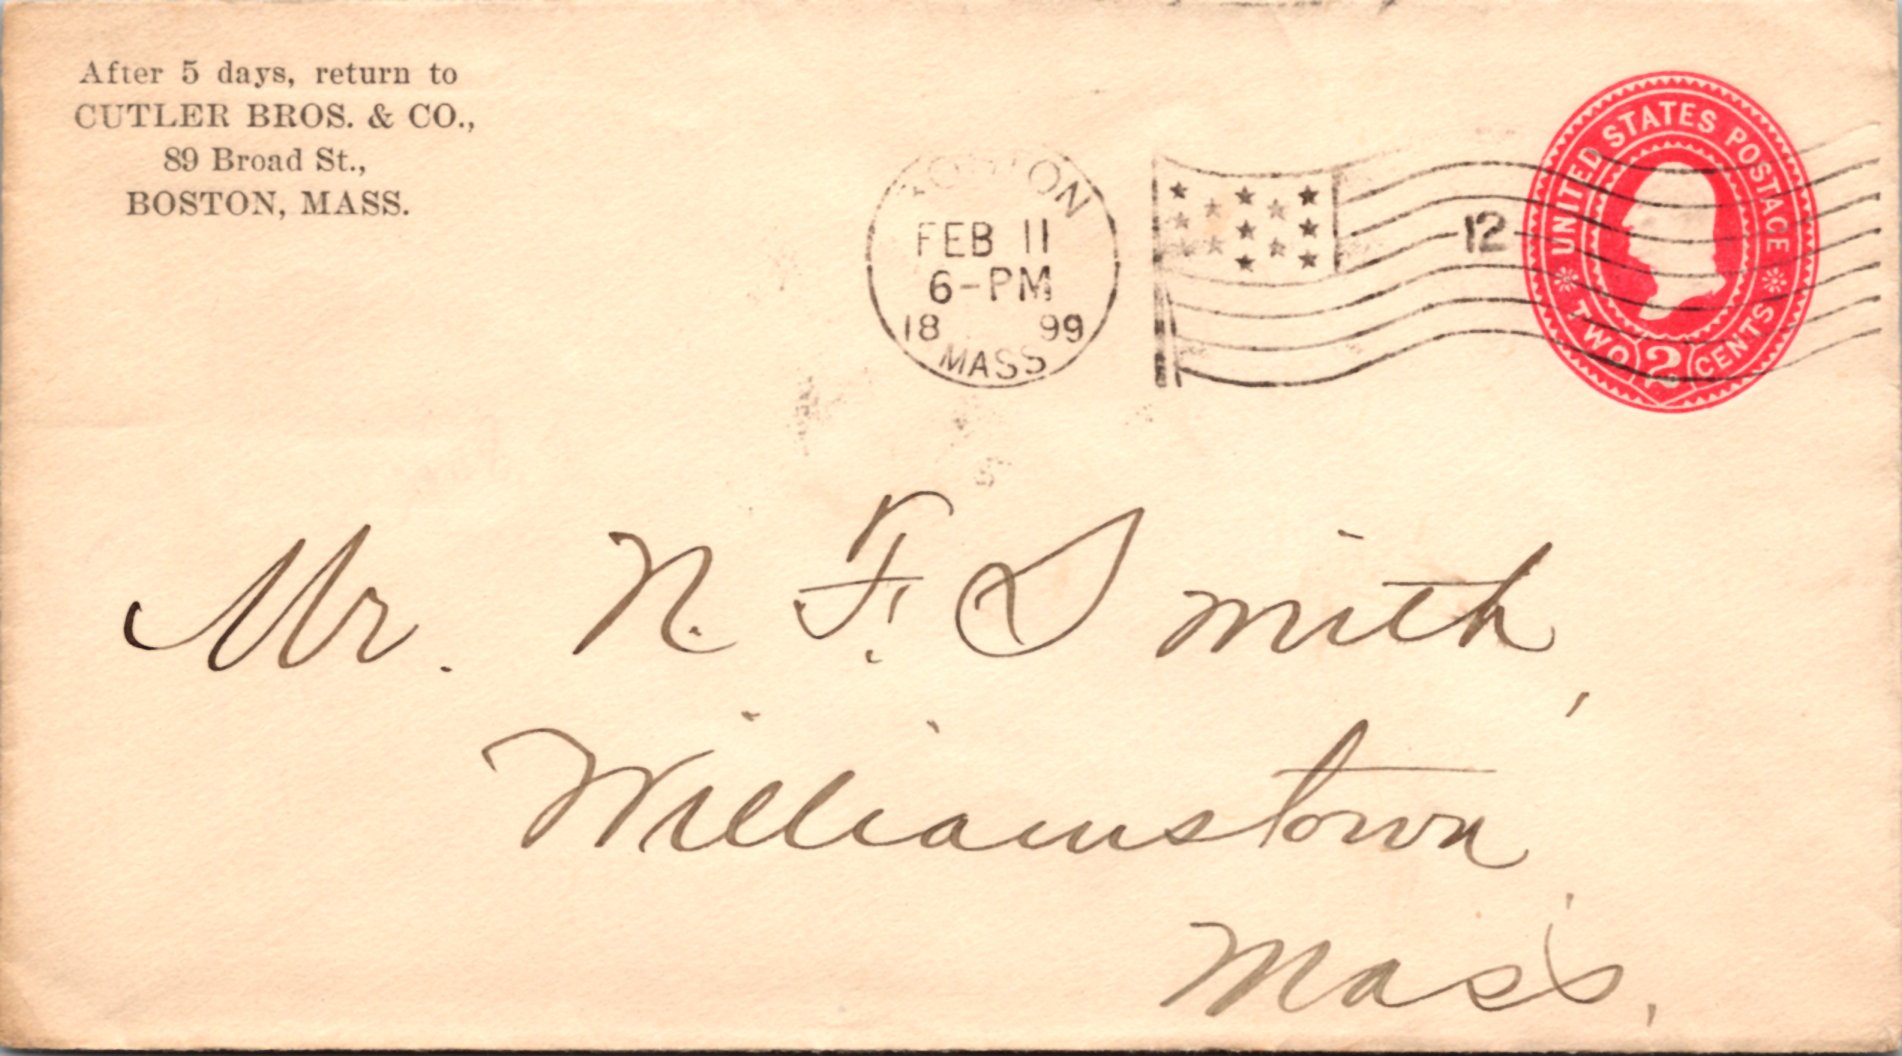 After 5 days, return to
CUTLER BROS. & CO.,
89 Broad St.,
BOSTON, MASS.
BOSTON
FEB 11
6-PM
18 99
MASS
12
UNITED STATES POSTAGE
TWO 2 CENTS
Mr. N. F. Smith,
Williamstown
Mass.